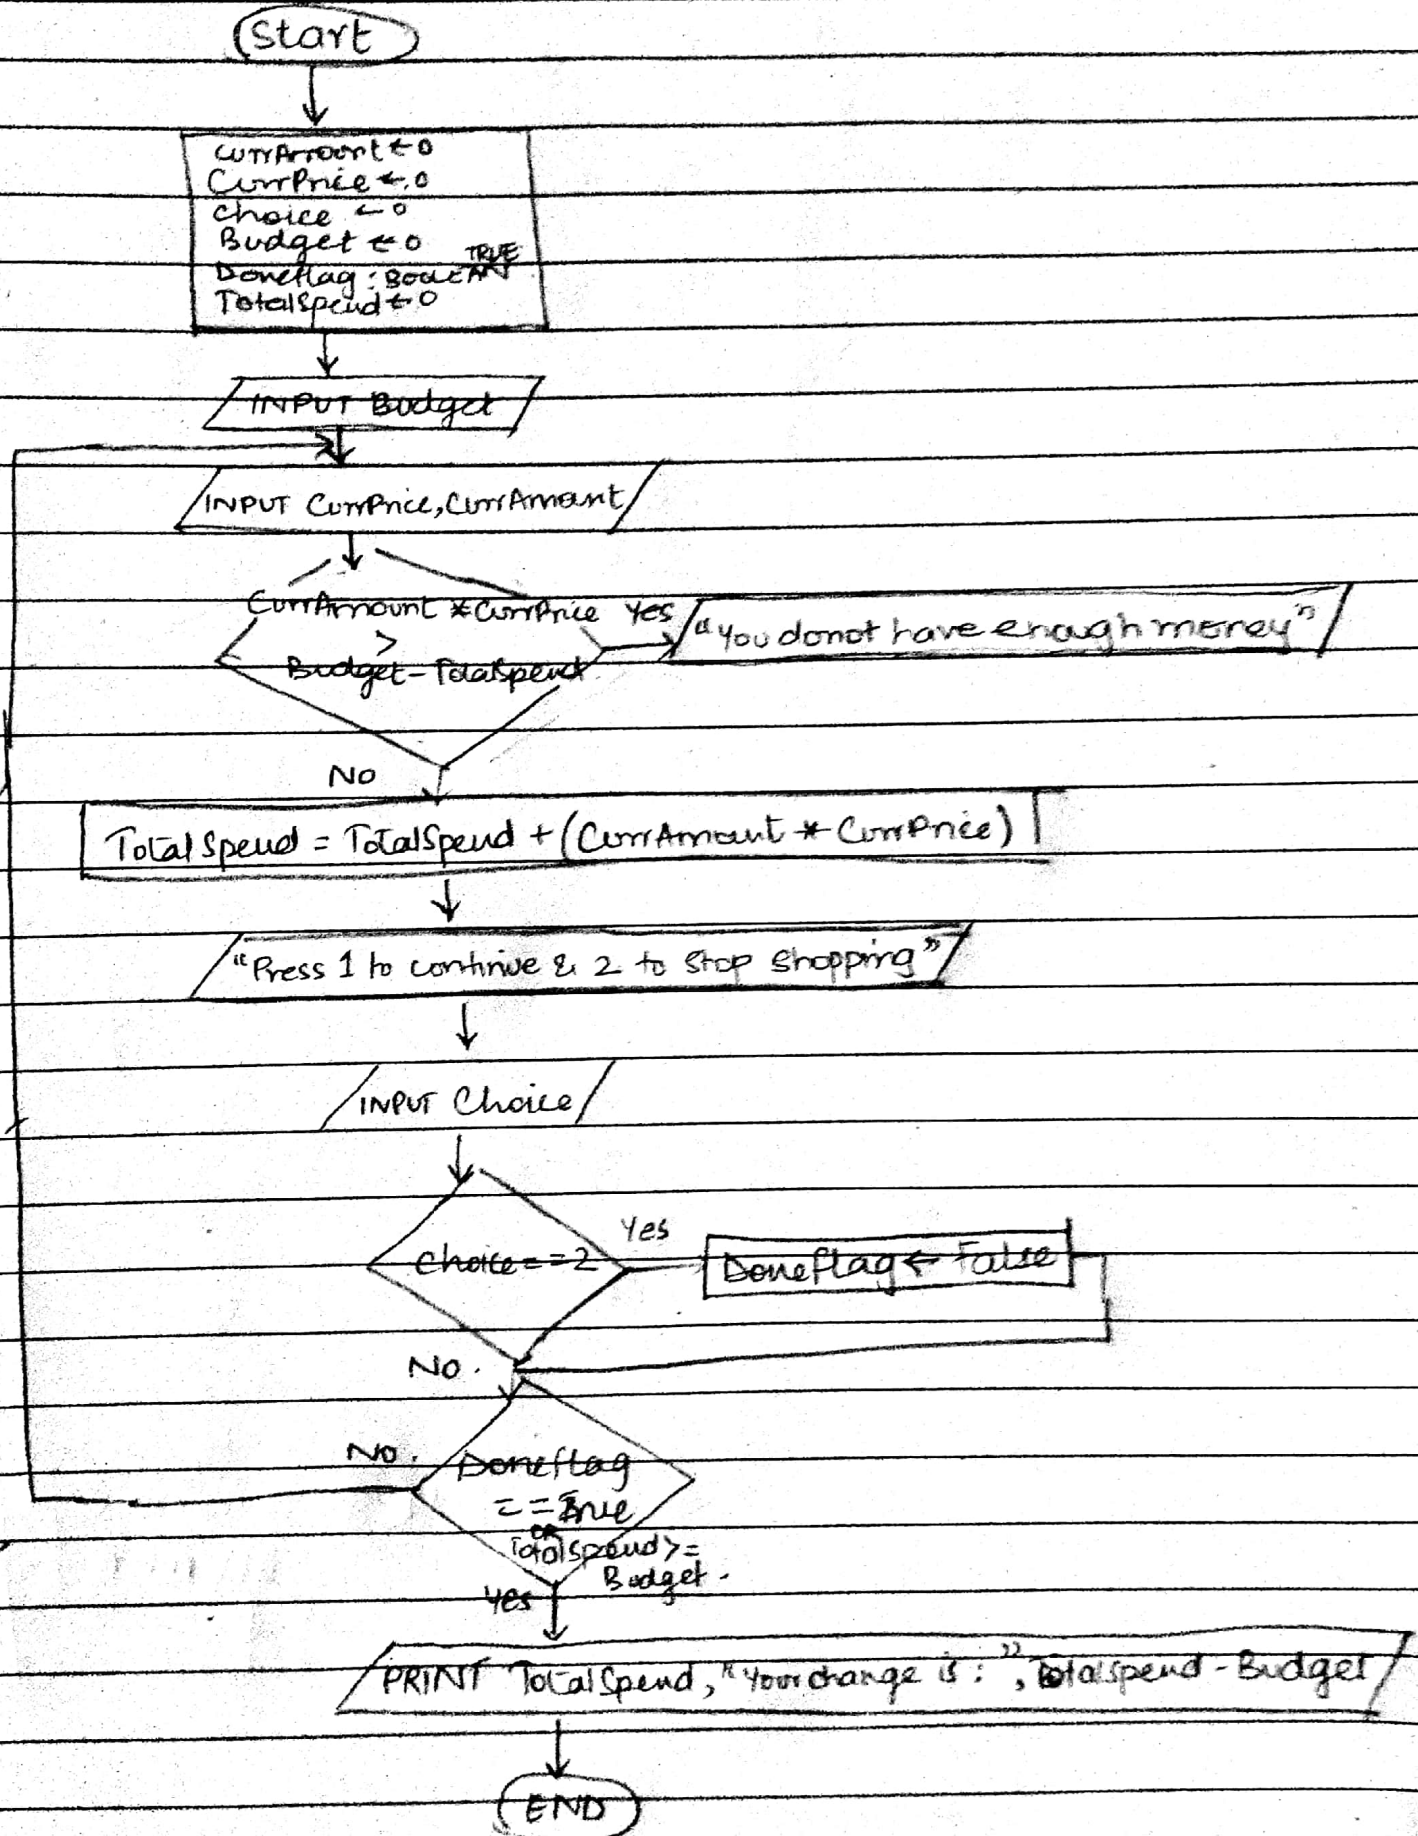 Start
CurrAmount ← 0
CurrPrice ← 0
choice ← 0
Budget ← 0
TRUE
Doneflag : BOOLEAN
TotalSpend ← 0
INPUT Budget
INPUT CurrPrice, CurrAmount
CurrAmount * CurrPrice
>
Budget - TotalSpend
Yes
"You donot have enough money"
No
TotalSpend = TotalSpend + (CurrAmount * CurrPrice)
"Press 1 to continue & 2 to stop shopping"
INPUT Choice
Choice == 2
Yes
Doneflag ← False
No.
No.
Doneflag
== True
OR
TotalSpend >=
Budget.
Yes
PRINT TotalSpend, "Your change is : ", Totalspend - Budget
END